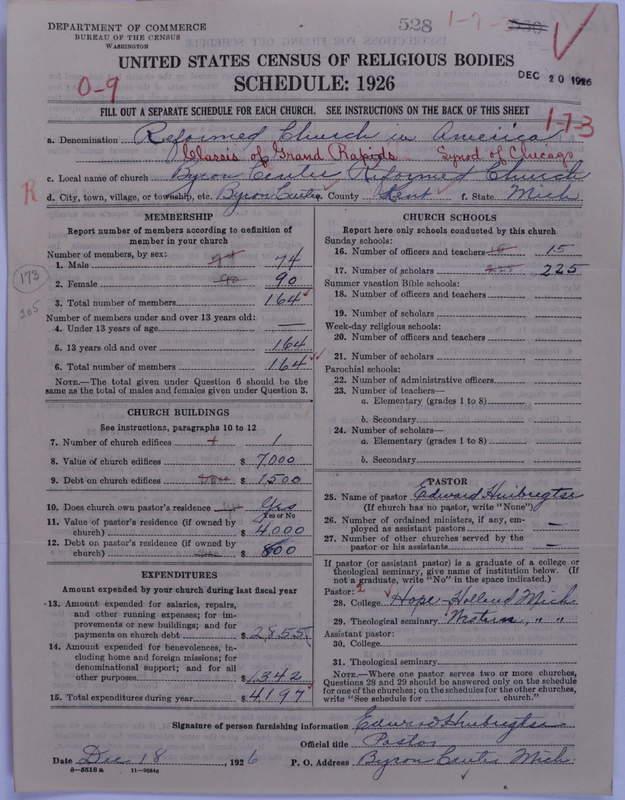 DEPARTMENT OF COMMERCE
BUREAU OF THE CENSUS
WASHINGTON
528
1-7-
UNITED STATES CENSUS OF RELIGIOUS BODIES
DEC 20 1926
SCHEDULE: 1926
0-9
FILL OUT A SEPARATE SCHEDULE FOR EACH CHURCH. SEE INSTRUCTIONS ON THE BACK OF THIS SHEET
1-7-3
a. Denomination Reformed Church in America
Classis of Grand Rapids Synod of Chicago
c. Local name of church Byron Center Reformed Church
R d. City, town, village, or township, etc. Byron Center e. County Kent f. State Mich
MEMBERSHIP
Report number of members according to definition of member in your church
Number of members, by sex:
1. Male 74 74
2. Female 90 90
3. Total number of members 164
173
205
Number of members under and over 13 years old:
4. Under 13 years of age —
5. 13 years old and over 164
6. Total number of members 164
NOTE.—The total given under Question 6 should be the same as the total of males and females given under Question 3.
CHURCH BUILDINGS
See instructions, paragraphs 10 to 12
7. Number of church edifices 1 1
8. Value of church edifices $ 7,000
9. Debt on church edifices $ 1500
10. Does church own pastor's residence Yes
Yes or No
11. Value of pastor's residence (if owned by church) $ 4,000
12. Debt on pastor's residence (if owned by church) $ 800
EXPENDITURES
Amount expended by your church during last fiscal year
13. Amount expended for salaries, repairs, and other running expenses; for improvements or new buildings; and for payments on church debt $ 2855
14. Amount expended for benevolences, including home and foreign missions; for denominational support; and for all other purposes $ 1,342
15. Total expenditures during year $ 4197
CHURCH SCHOOLS
Report here only schools conducted by this church
Sunday schools:
16. Number of officers and teachers 15 15
17. Number of scholars 225 225
Summer vacation Bible schools:
18. Number of officers and teachers
19. Number of scholars
Week-day religious schools:
20. Number of officers and teachers
21. Number of scholars
Parochial schools:
22. Number of administrative officers
23. Number of teachers—
a. Elementary (grades 1 to 8)
b. Secondary
24. Number of scholars—
a. Elementary (grades 1 to 8)
b. Secondary
PASTOR
25. Name of pastor Edward Huibregtse
(If church has no pastor, write "None")
26. Number of ordained ministers, if any, employed as assistant pastors —
27. Number of other churches served by the pastor or his assistants —
If pastor (or assistant pastor) is a graduate of a college or theological seminary, give name of institution below. (If not a graduate, write "No" in the space indicated.)
Pastor: 2
28. College Hope - Holland Mich
29. Theological seminary Western, " "
Assistant pastor:
30. College
31. Theological seminary
NOTE.—Where one pastor serves two or more churches, Questions 28 and 29 should be answered only on the schedule for one of the churches; on the schedules for the other churches, write "See schedule for church."
Signature of person furnishing information Edward Huibregtse
Official title Pastor
Date Dec 18, 1926 P. O. Address Byron Center Mich.
8—5518 a 11—9054a